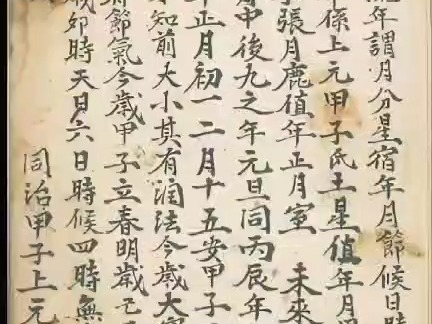 年謂月分星宿年月節候日時
係上元甲子氐土星值年月
張月鹿值年正月室 未來
中後九之年元旦同丙辰年
正月初一二月十五安甲子
知前大小其有潤法今歲大
節氣今歲甲子立春明歲乙
夘時天日六日時候四時無
同治甲子上元